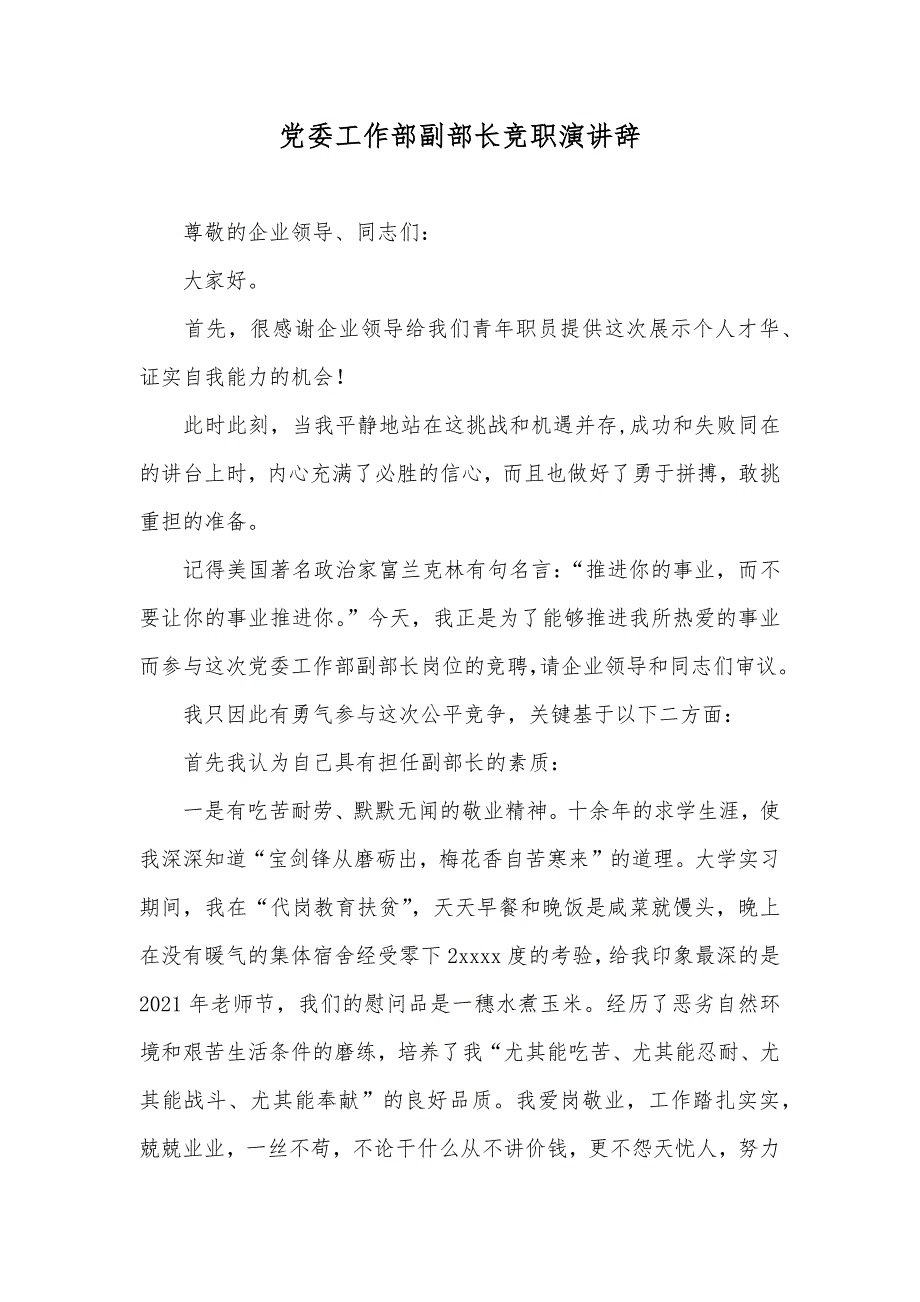 党委工作部副部长竞职演讲辞
尊敬的企业领导、同志们：
大家好。
首先，很感谢企业领导给我们青年职员提供这次展示个人才华、
证实自我能力的机会！
此时此刻，当我平静地站在这挑战和机遇并存,成功和失败同在
的讲台上时，内心充满了必胜的信心，而且也做好了勇于拼搏，敢挑
重担的准备。
记得美国著名政治家富兰克林有句名言：“推进你的事业，而不
要让你的事业推进你。”今天，我正是为了能够推进我所热爱的事业
而参与这次党委工作部副部长岗位的竞聘,请企业领导和同志们审议。
我只因此有勇气参与这次公平竞争，关键基于以下二方面：
首先我认为自己具有担任副部长的素质：
一是有吃苦耐劳、默默无闻的敬业精神。十余年的求学生涯，使
我深深知道“宝剑锋从磨砺出，梅花香自苦寒来”的道理。大学实习
期间，我在“代岗教育扶贫”，天天早餐和晚饭是咸菜就馒头，晚上
在没有暖气的集体宿舍经受零下 2xxxx 度的考验,给我印象最深的是
2021 年老师节，我们的慰问品是一穗水煮玉米。经历了恶劣自然环
境和艰苦生活条件的磨练，培养了我“尤其能吃苦、尤其能忍耐、尤
其能战斗、尤其能奉献”的良好品质。我爱岗敬业，工作踏扎实实，
兢兢业业，一丝不苟，不论干什么从不讲价钱，更不怨天忧人，努力